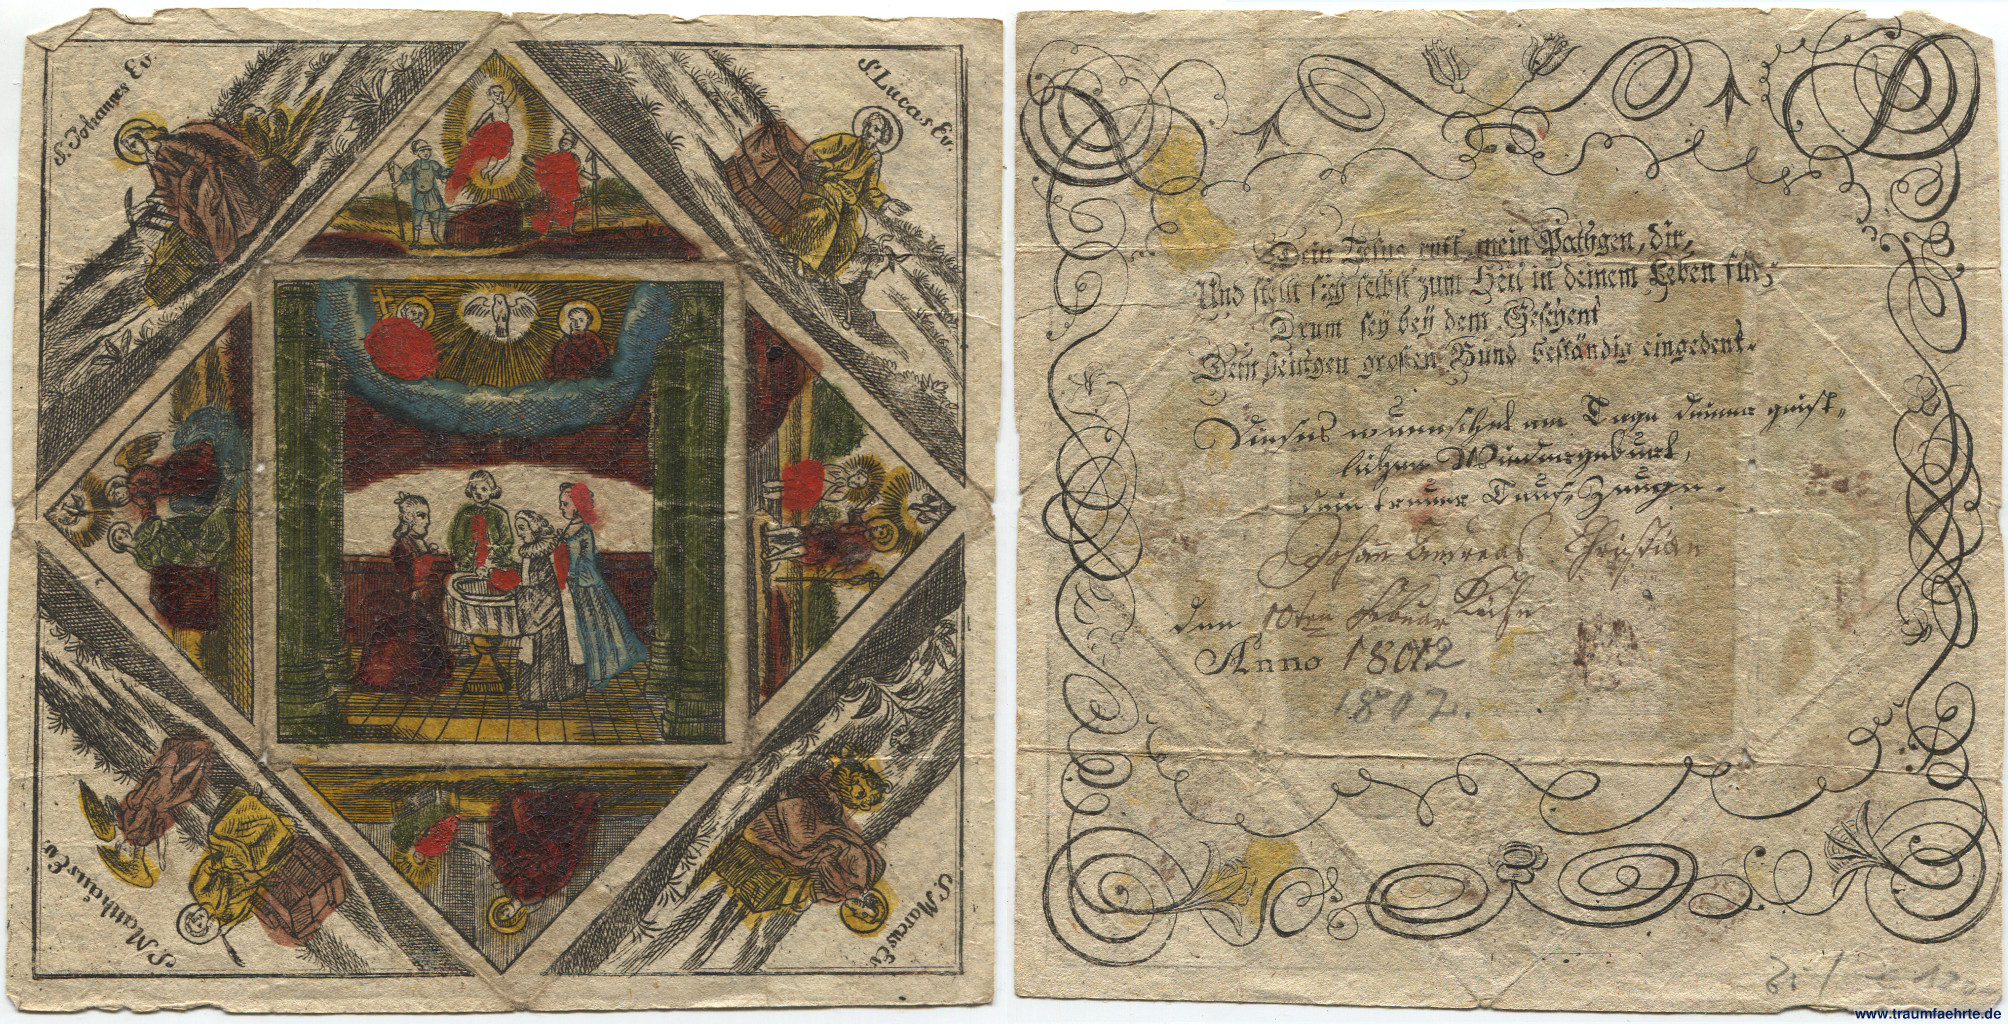 S. Johannes Ev.
S. Lucas Ev.
S. Matthäus Ev
S. Marcus Ev
Dein Jesus ruft, mein Pathgen, dir,
Und stellt sich selbst zum Heil in deinem Leben für,
Drum sey bey dem Geschenk
Dein heutgen großen Bund beständig eingedenk.
Dieses wuenschet am Tage deiner geist-
lichen Wiedergeburt,
dein treuer Tauf-Zeuge.
Johann Andreas Christian
Kühn
den 10ten Februar
Anno 1802
1802.
www.traumfaehrte.de